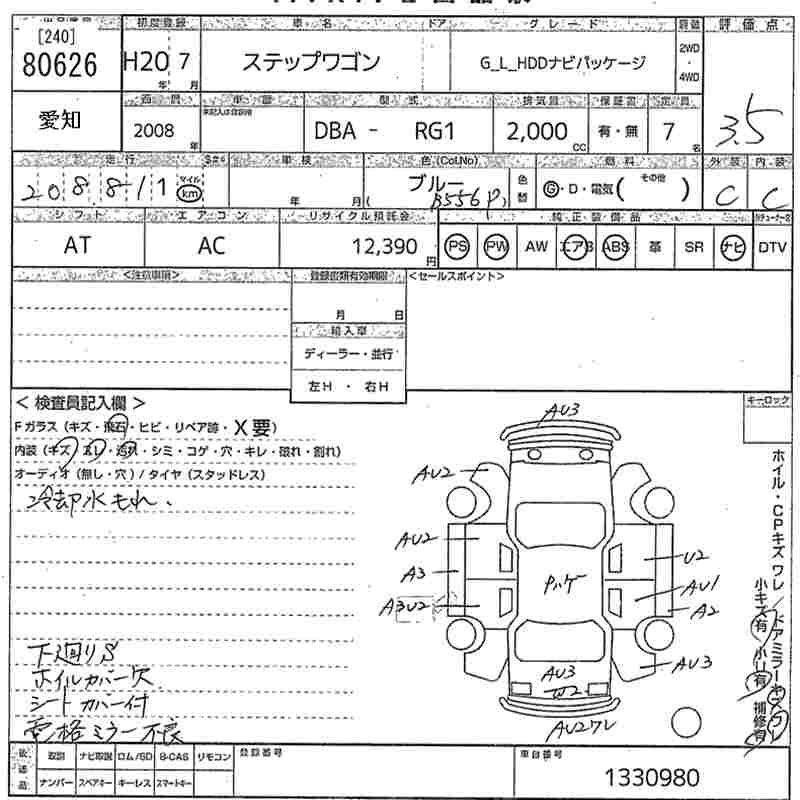 [240]
80626
初度登録 車名 ドア グレード 評価点
H20 7
年 月
ステップワゴン
G_L_HDDナビパッケージ
2WD
・
4WD
3.5
愛知
車歴 型式 排気量 保証書 定員
2008
年
DBA - RG1
2,000
CC
有・無
7
名
走行 車検 色(Col.No) 燃料 外装 内装
208,811
マイル
km
年 月
ブルー
(B556P)
色替
G・D・電気( その他 )
C C
シフト エアコン リサイクル預託金 純正装備品
AT
AC
12,390
円
PS PW AW エアB ABS 革 SR ナビ DTV
<注意事項> 登録書類有効期限 <セールスポイント>
月 日
輸入車
ディーラー・並行
左H ・ 右H
< 検査員記入欄 >
キーロック
Fガラス(キズ・飛石・ヒビ・リペア跡・X要)
内装(キズ・スレ・汚れ・シミ・コゲ・穴・キレ・破れ・割れ)
オーディオ(無し・穴)/タイヤ(スタッドレス)
冷却水もれ、
AU3
AU2
AU2
A3
A3U2
U2
AU1
A2
AU3
Pハゲ
AU3
W2
AU2ワレ
ホイル・CPキズ ワレ/ドアミラーキズワレ
小キズ有 小凹有 補修有
下廻りS
ホイルカバー欠
シートカバー付
電格ミラー不良
欠品
取説 ナビ取説 ロム/SD B-CAS リモコン
ナンバー スペアキー キーレス スマートキー
登録番号
車台番号
1330980